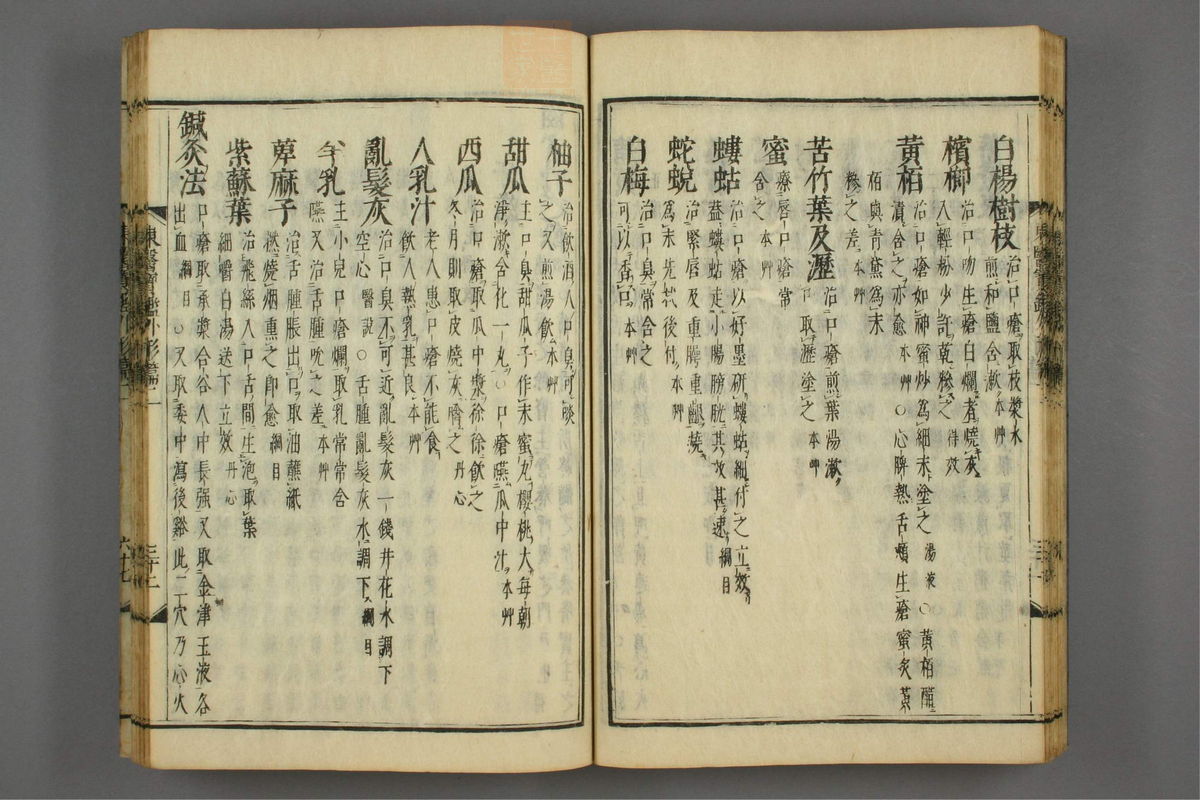 白楊樹枝 治口瘡取枝漿水
煎和鹽含漱 本艸
檳榔 治口吻生瘡白爛煮燒灰
入輕粉少許乾糝之 得效
黃栢 治口瘡如神蜜炒爲細末塗之 湯液 ○黃栢醋
漬含之亦愈 本艸 ○心脾熱舌頰生瘡蜜炙黃
栢與青黛爲末
糝之差 本艸
苦竹葉及瀝 治口瘡煎葉湯漱
口取瀝塗之 本艸
蜜 療唇口瘡常
含之 本艸
螻蛄 治口瘡以好墨研螻蛄細付之立效
蓋螻蛄走小陽膀胱其效甚速 綱目
蛇蛻 治緊唇及重腭重齦燒
爲末先拭後付 本艸
白梅 治口臭常含之
可以香口 本艸
柚子 治飲酒人口臭可啖
之又煎湯飲 本艸
甜瓜 主口臭甜瓜子作末蜜丸櫻桃大每朝
淨漱含化一丸○口瘡嚥瓜中汁 本艸
西瓜 治口瘡取瓜中漿徐徐飲之
冬月則取皮燒灰噙之 丹心
人乳汁 老人患口瘡不能食
飲人熱乳甚良 本艸
亂髮灰 治口臭不可近亂髮灰一錢井花水調下
空心 醫說 ○舌腫亂髮灰水調下 綱目
牛乳 主小兒口瘡爛取乳常常含
嚥又治舌腫吮之差 本艸
萆麻子 治舌腫脹出口取油蘸紙
撚燒烟熏之卽愈 綱目
紫蘇葉 治飛絲入口舌間生泡取葉
細嚼白湯送下立效 丹心
鍼灸法 口瘡取承漿合谷人中長强又取金津玉液各
出血 綱目 ○又取委中瀉後谿此二穴乃心火
東醫寶鑑外形篇二
三十二